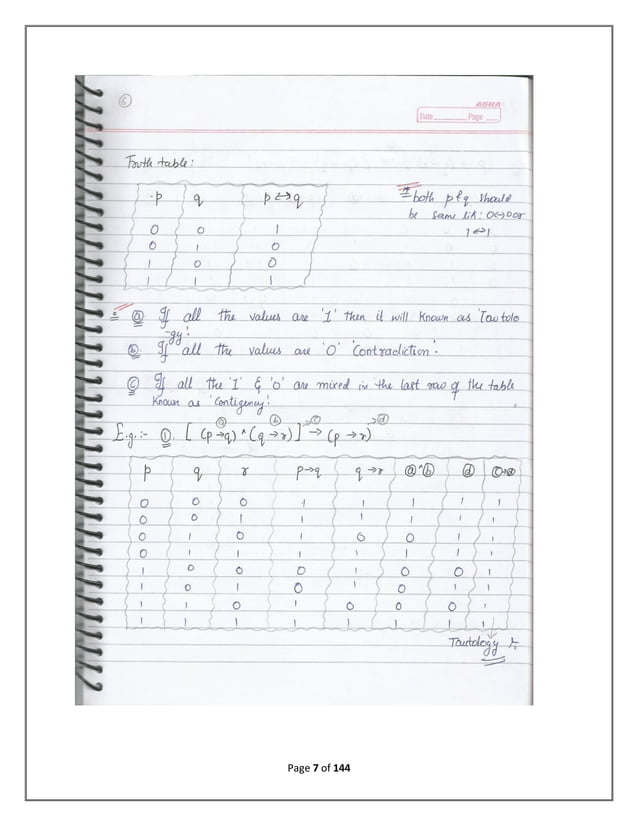 6
ASHA
Date Page
Truth table:
p q p↔q
0 0 1
0 1 0
1 0 0
1 1 1
* both p & q should
be same lik: 0↔0 or
1↔1
* (a) If all the values are '1' then it will known as 'Tautolo
-gy'.
(b). If all the values are '0' 'Contradiction'.
(c) If all the '1' & '0' are mixed in the last row of the table
known as 'Contigency'.
(a) (b) (c) (d)
E.g.:- (1). [ (p→q) ^ (q→r) ] → (p→r)
p q r p→q q→r (a)^(b) (d) (c)→(d)
0 0 0 1 1 1 1 1
0 0 1 1 1 1 1 1
0 1 0 1 0 0 1 1
0 1 1 1 1 1 1 1
1 0 0 0 1 0 0 1
1 0 1 0 1 0 1 1
1 1 0 1 0 0 0 1
1 1 1 1 1 1 1 1
Tautology
Page 7 of 144